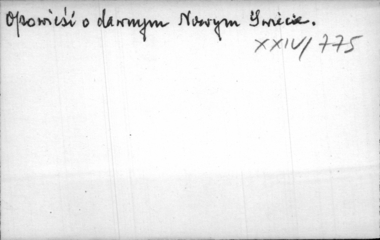 Opowieść o dawnym Nowym Świecie.
XXIV/775